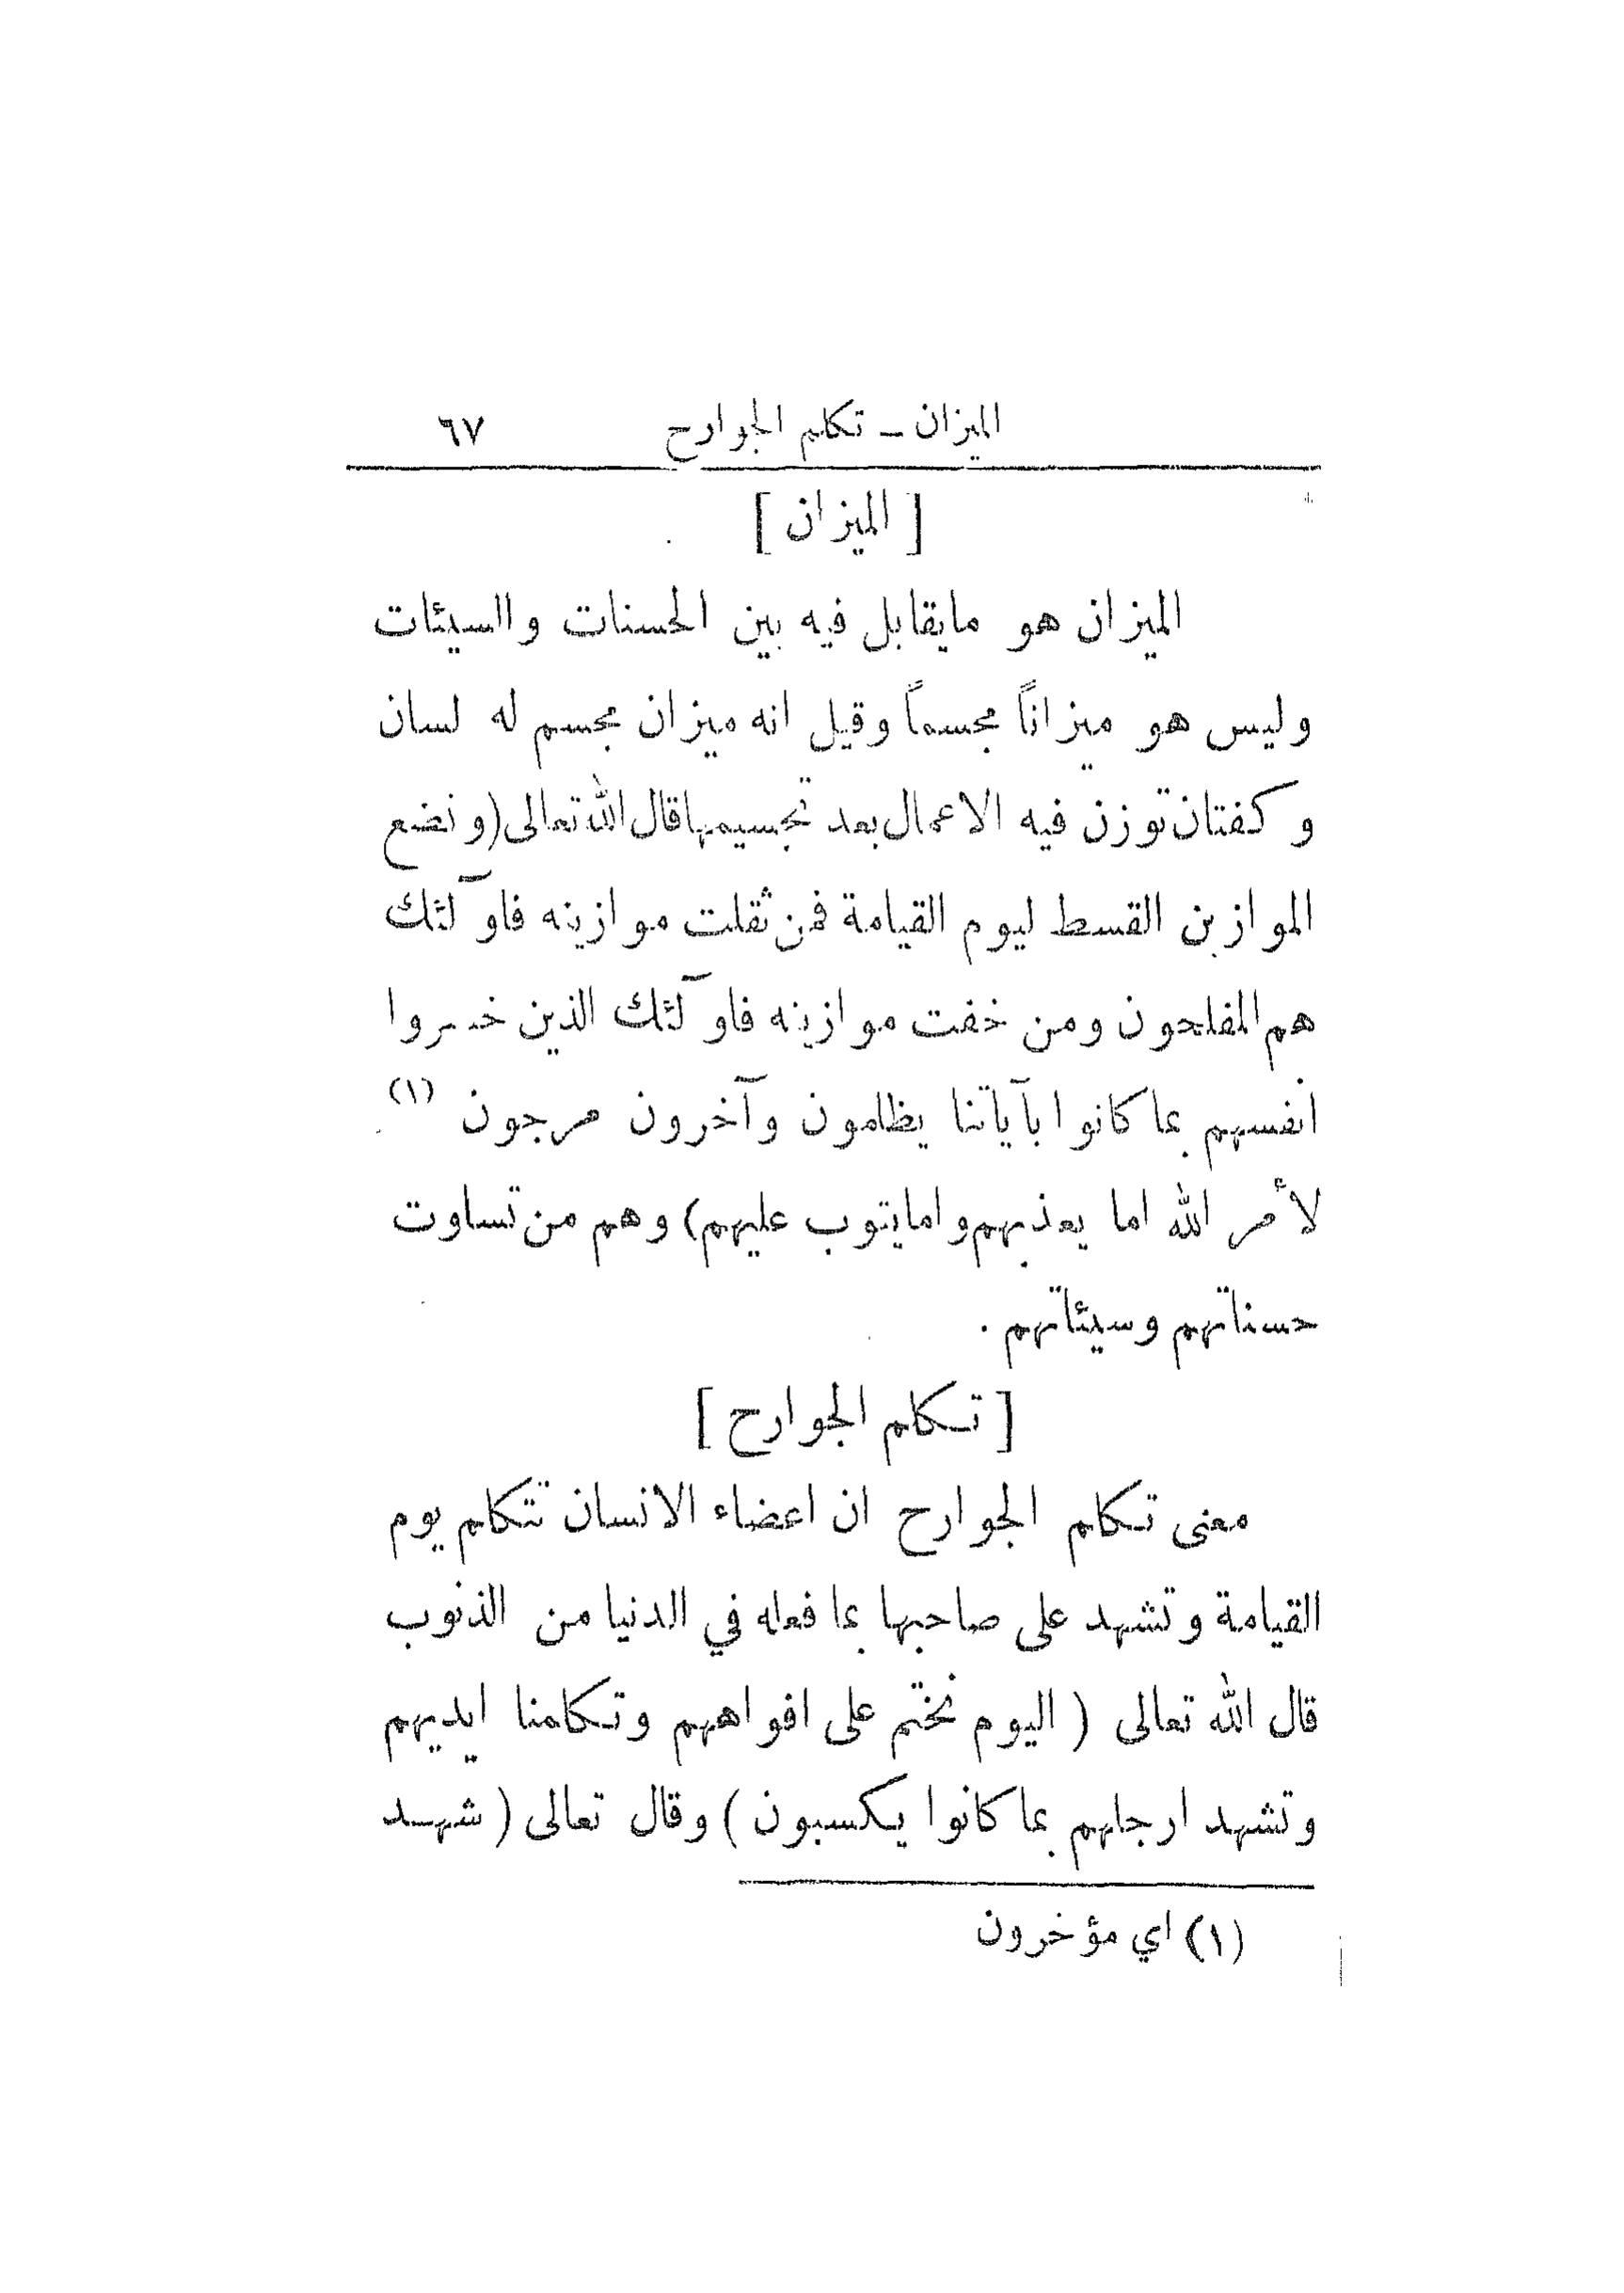 الميزان ــ تكلم الجوارح ٦٧
[ الميزان ]
الميزان هو مايقابل فيه بين الحسنات والسيئات
وليس هو ميزاناً مجسماً وقيل انه ميزان مجسم له لسان
وكفتان توزن فيه الاعمال بعد تجسيمها قال الله تعالى (ونضع
الموازين القسط ليوم القيامة فمن ثقلت موازينه فاولٓئك
هم المفلحون ومن خفت موازينه فاولٓئك الذين خسروا
انفسهم بما كانوا بآياتنا يظلمون وآخرون مرجون (١)
لأمر الله اما يعذبهم واما يتوب عليهم) وهم من تساوت
حسناتهم وسيئاتهم .
[ تكلم الجوارح ]
معنى تكلم الجوارح ان اعضاء الانسان تتكلم يوم
القيامة وتشهد على صاحبها بما فعله في الدنيا من الذنوب
قال الله تعالى ( اليوم نختم على افواههم وتكلمنا ايديهم
وتشهد ارجلهم بما كانوا يكسبون ) وقال تعالى ( شهد
(١) اي مؤخرون